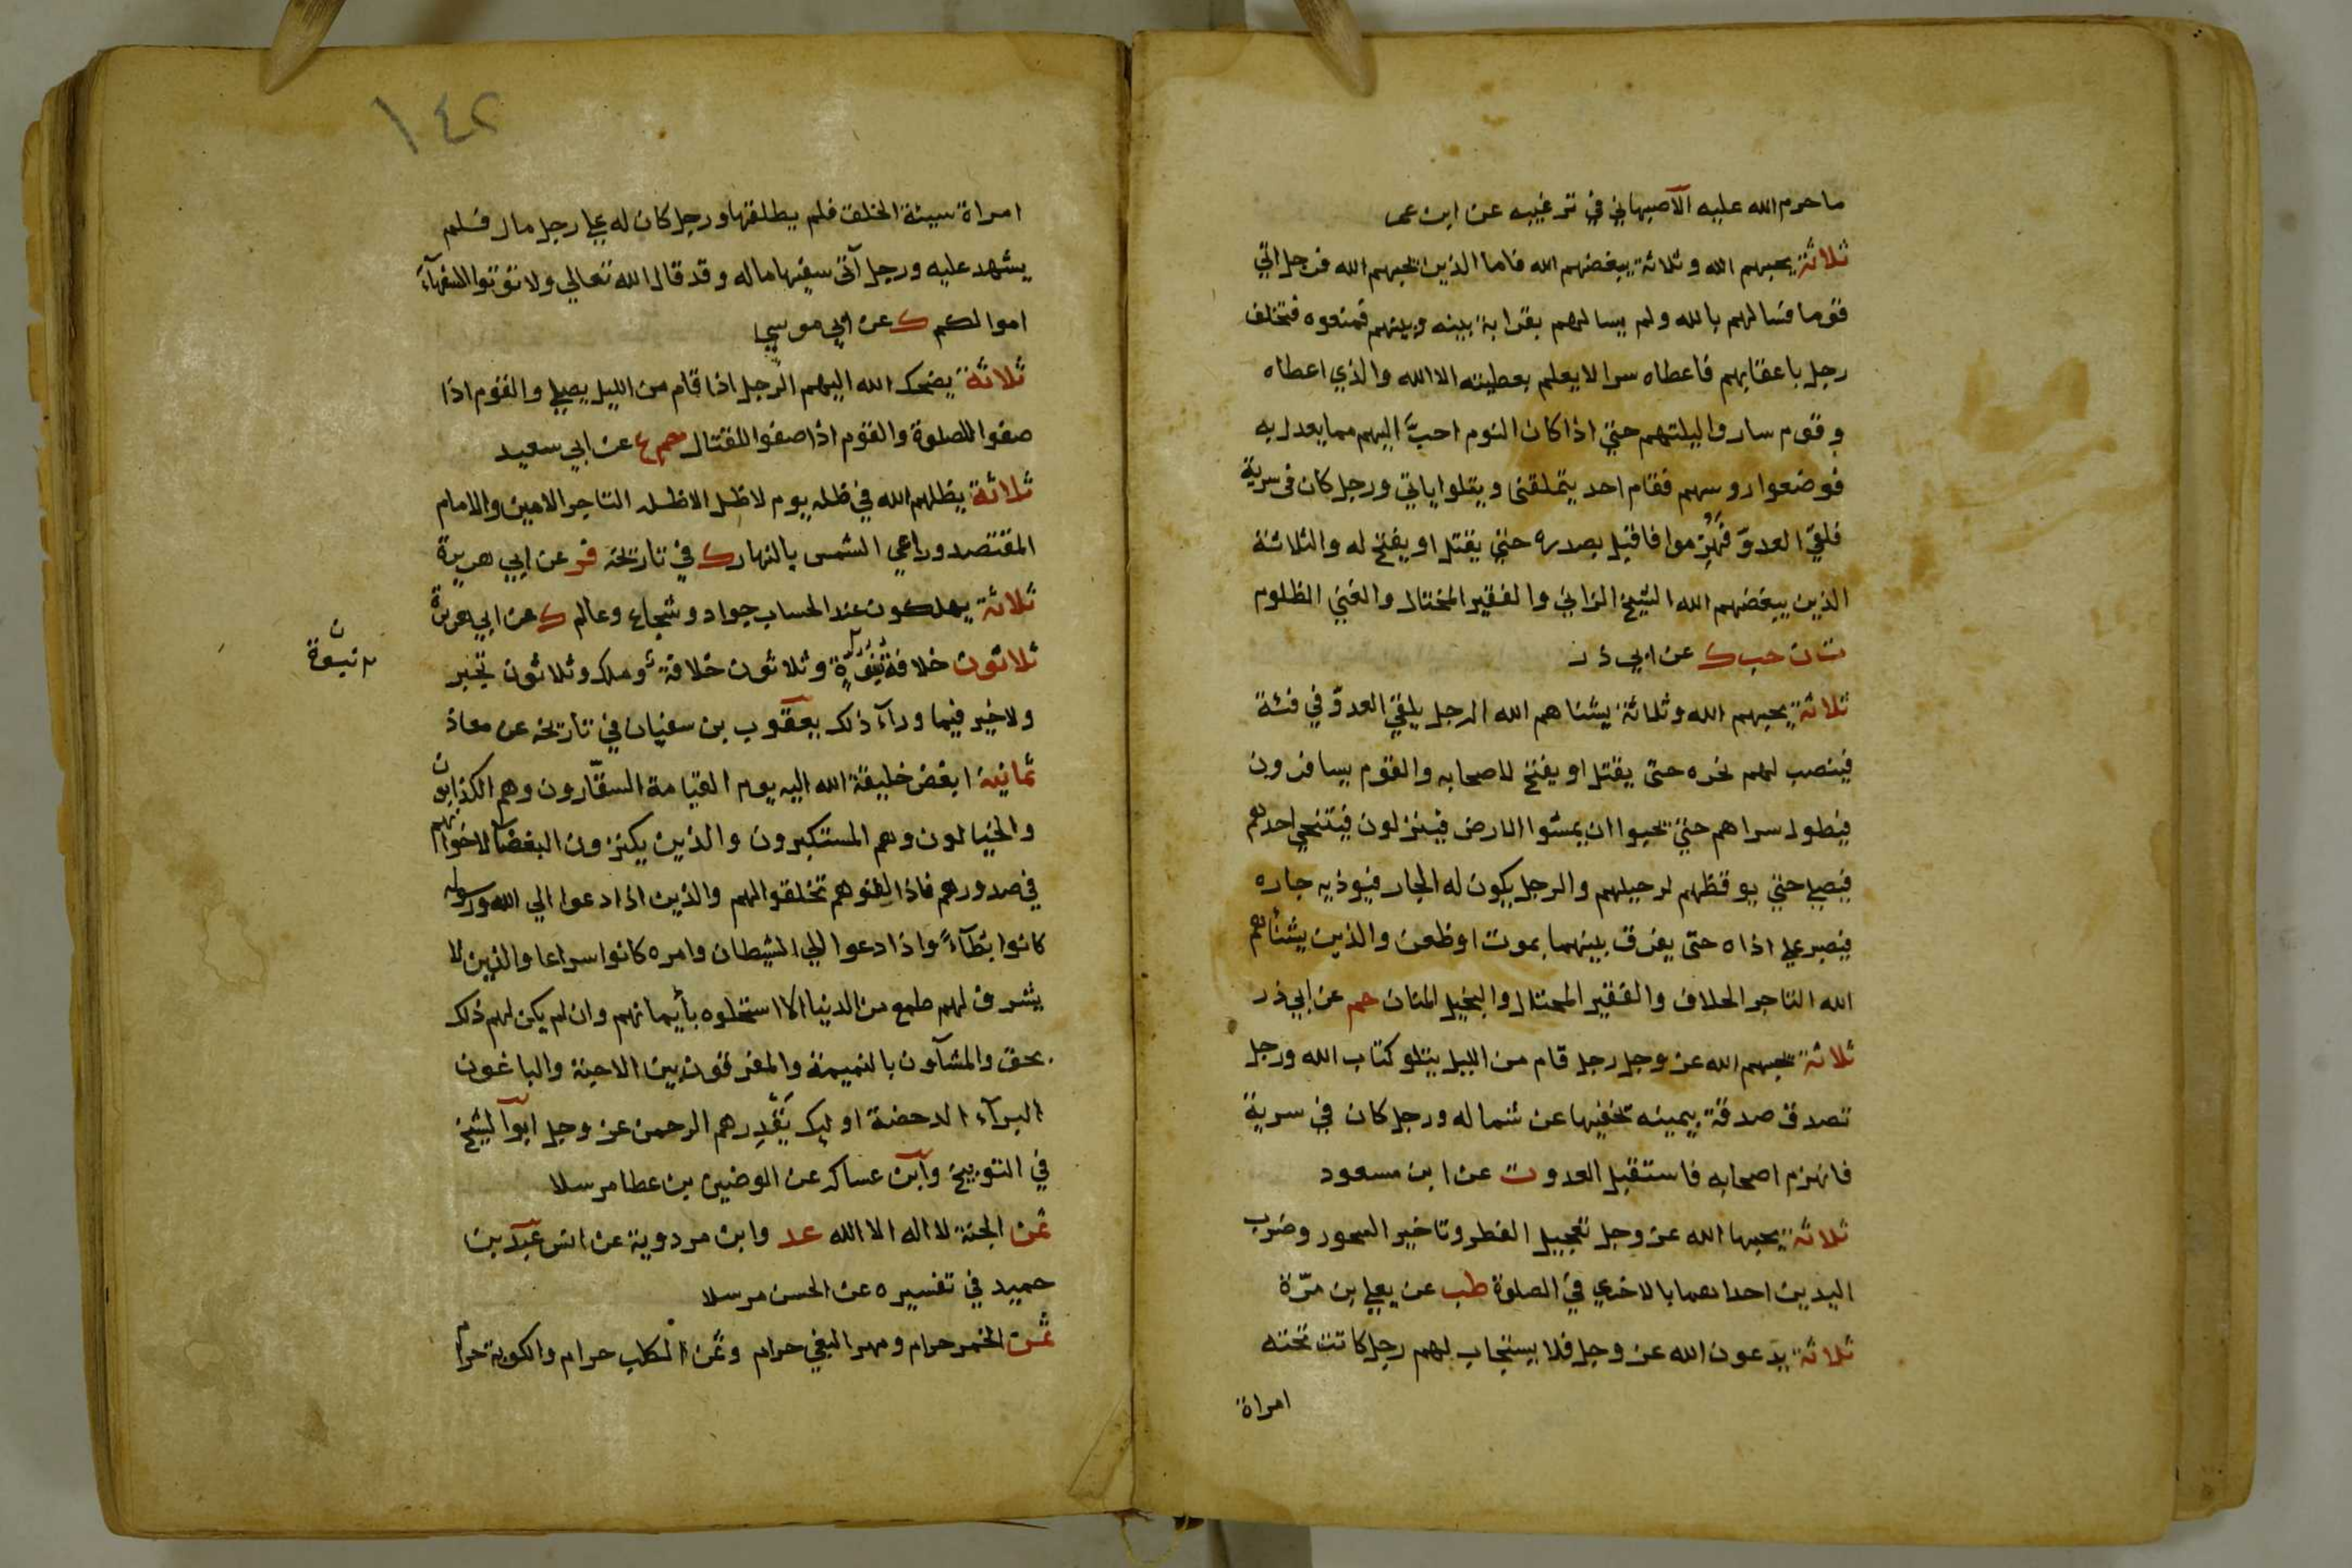 ما حرم الله عليه الاصبهاني في ترغيبه عن ابن عمر
ثلاثة يحبهم الله وثلاثة يبغضهم الله فاما الذين يحبهم الله فرجل اتي
قوما فسالهم بالله ولم يسالهم بقرابة بينه وبينهم فمنعوه فتخلف
رجل باعقابهم فاعطاه سرا لا يعلم بعطيته الا الله والذي اعطاه
وقوم ساروا ليلتهم حتي اذا كان النوم احبّ اليهم مما يعدل به
فوضعوا روسهم فقام احد يتملقنى ويتلوا اياتي ورجل كان في سرية
فلقي العدوّ فهُزِموا فاقبل بصدره حتي يقتل او يفتح له والثلاثة
الذين يبغضهم الله الشيخ الزاني والفقير المختال والغني الظلوم
ت ن حب ك عن ابي ذر
ثلاثة يحبهم الله وثلاثة يشناهم الله الرجل يلقي العدوّ في فئة
فينصب لهم نحره حتى يقتل او يفتح لاصحابه والقوم يسافرون
فيطول سراهم حتي يحبوا ان يمسوا الارض فينزلون فيتنحي احدهم
فيصلي حتي يوقظهم لرحيلهم والرجل يكون له الجار فيوذيه جاره
فيصبر علي اذاه حتى يفرق بينهما بموت اوظعن والذين يشنأهم
الله التاجر الحلاف والفقير المختال والبخيل المنان حم عن ابي ذر
ثلاثة يحبهم الله عز وجل رجل قام من الليل يتلو كتاب الله ورجل
تصدق صدقة بيمينه يخفيها عن شماله ورجل كان في سرية
فانهزم اصحابه فاستقبل العدو ت عن ابن مسعود
ثلاثة يحبها الله عز وجل تعجيل الفطر وتاخير السحور وضرب
اليدين احداهما بالاخري في الصلوة طب عن يعلي بن مرّة
ثلاثة يدعون الله عز وجل فلا يستجاب لهم رجل كانت تحته
امراة
١٤٢
امراة سيئة الخلق فلم يطلقها ورجل كان له علي رجل مال فلم
يشهد عليه ورجل آتى سفيها ماله وقد قال الله تعالي ولا تؤتوا السفهآء
اموالكم ك عن ابي موسي
ثلاثة يضحك الله اليهم الرجل اذا قام من الليل يصلي والقوم اذا
صفوا للصلوة والقوم اذا صفوا للقتال حم ع عن ابي سعيد
ثلاثة يظلهم الله في ظله يوم لا ظل الا ظله التاجر الامين والامام
المقتصد وراعي الشمس بالنهار ك في تاريخه فر عن ابي هريرة
ثلاثة يهلكون عند الحساب جواد وشجاع وعالم ك عن ابي هريرة
ثلاثون خلافة نبوّة وثلاثون خلافة وملك وثلاثون تجبر
ولا خير فيما ورآء ذلك يعقوب بن سفيان في تاريخه عن معاذ
ثمانية ابغض خليقة الله اليه يوم القيامة السقّارون وهم الكذابون
والخيالون وهم المستكبرون والذين يكنزون البغضا لاخوانهم
في صدورهم فاذا لقوهم تخلقوا لهم والذين اذا دعوا الي الله ورسوله
كانوا بطآءً واذا دعوا الي الشيطان وامره كانوا سراعا والذين لا
يشرف لهم طمع من الدنيا الا استحلوه بأيمانهم وان لم يكن لهم ذلك
بحق والمشآون بالنميمة والمفرقون بين الاحبة والباغون
البرآء الدحضة اوليك يَقْذِرهم الرحمن عز وجل ابوا لشيخ
في التوبيخ وابن عساكر عن الوضين بن عطا مرسلا
ثمن الجنة لا اله الا الله عد وابن مردوية عن انس عبد بن
حميد في تفسيره عن الحسن مرسلا
ثمن الخمر حرام ومهر البغي حرام وثمن الكلب حرام والكوبة حرام